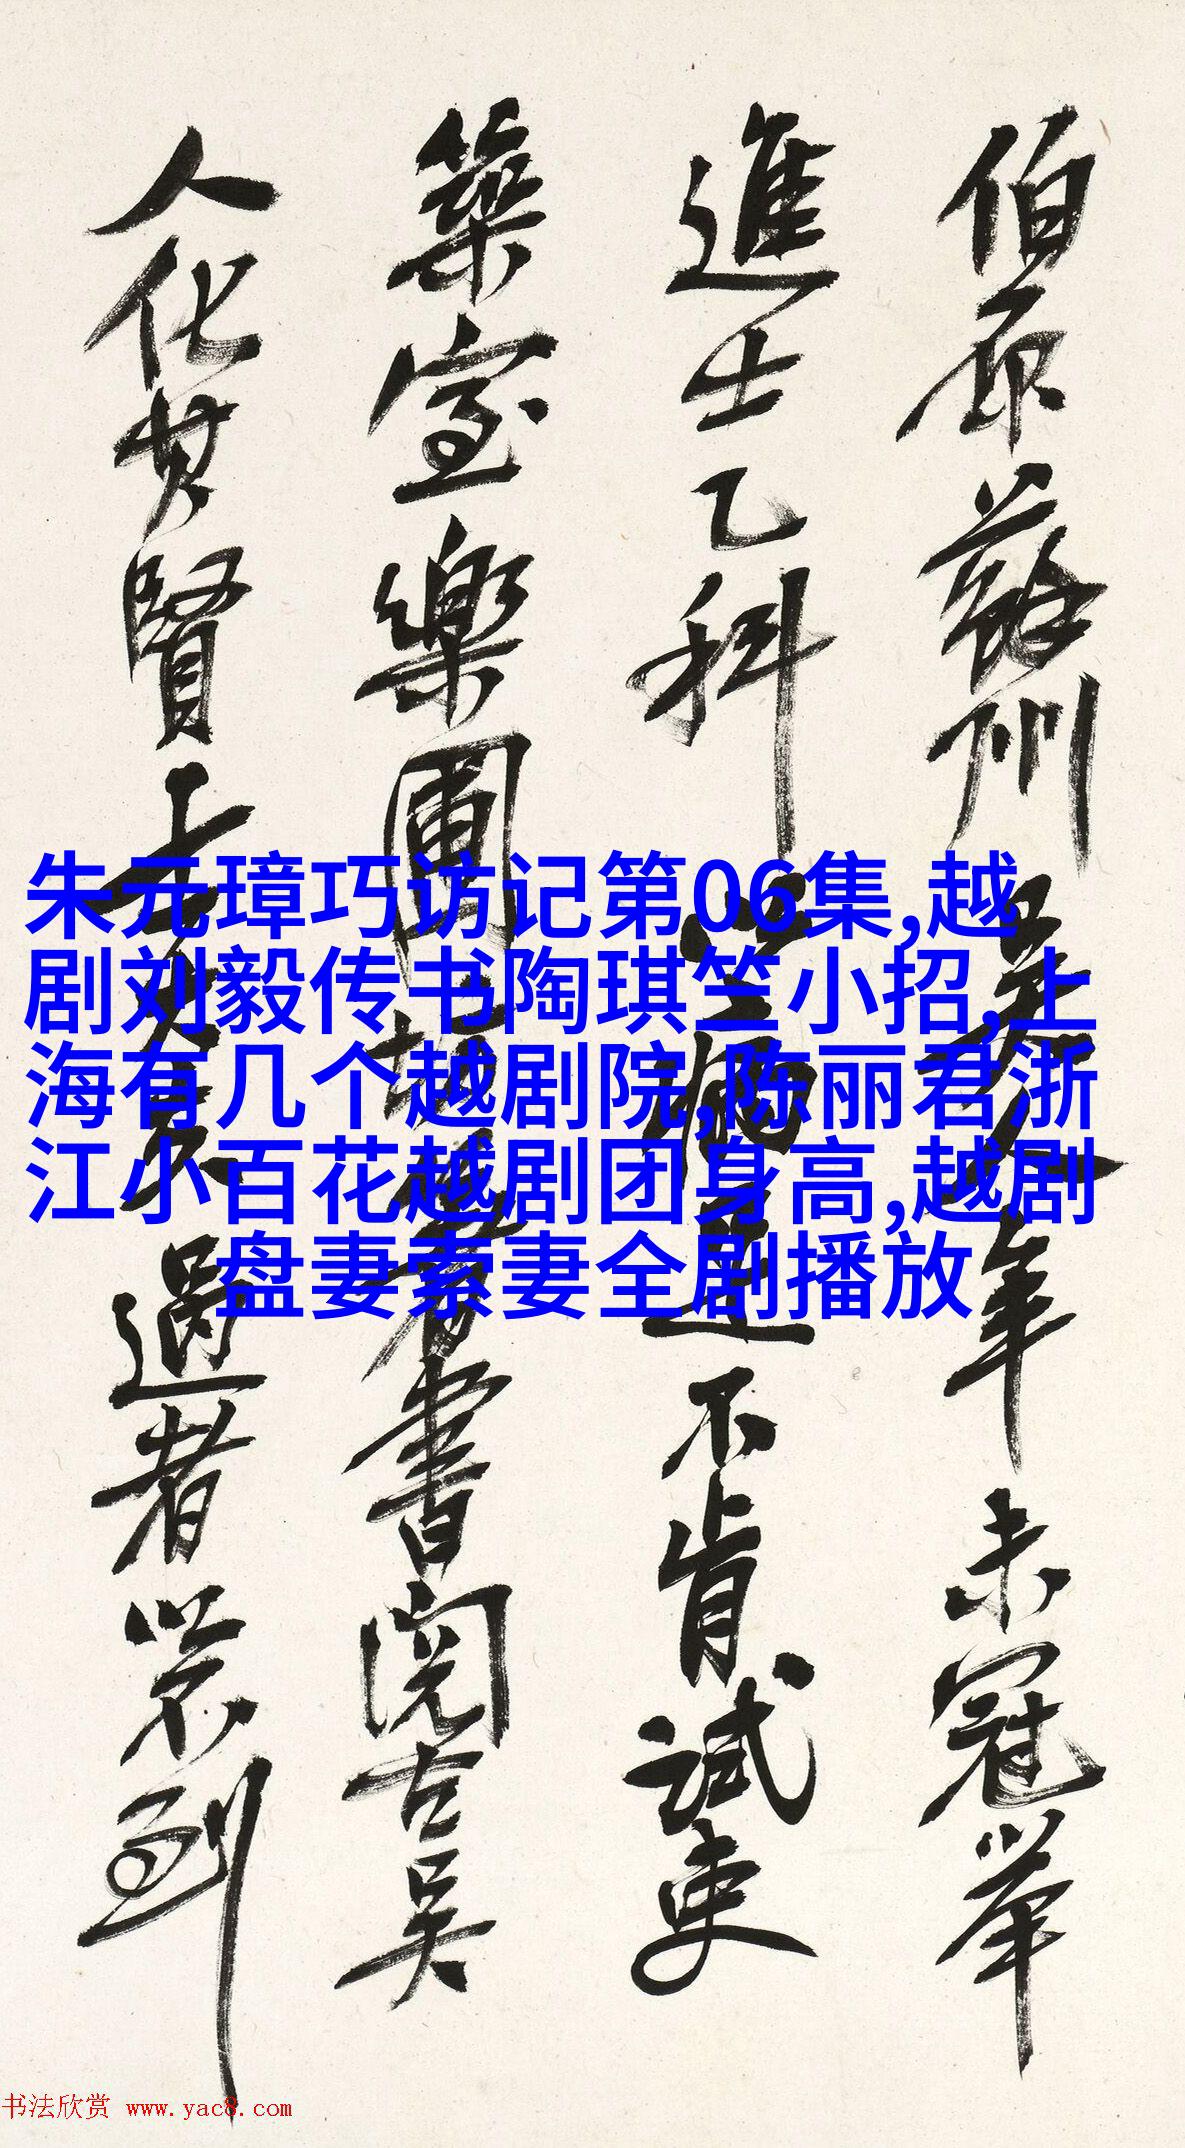 伯原蘇州吳人年未冠舉
進士乙科以病不肯試吏
築室樂圃坊著書閱古吳
人化其賢過者以不到
朱元璋巧访记第06集,越
剧刘毅传书陶琪竺小招,上
海有几个越剧院,陈丽君浙
江小百花越剧团身高,越剧
盘妻索妻全剧播放
书法欣赏 www.yac8.com